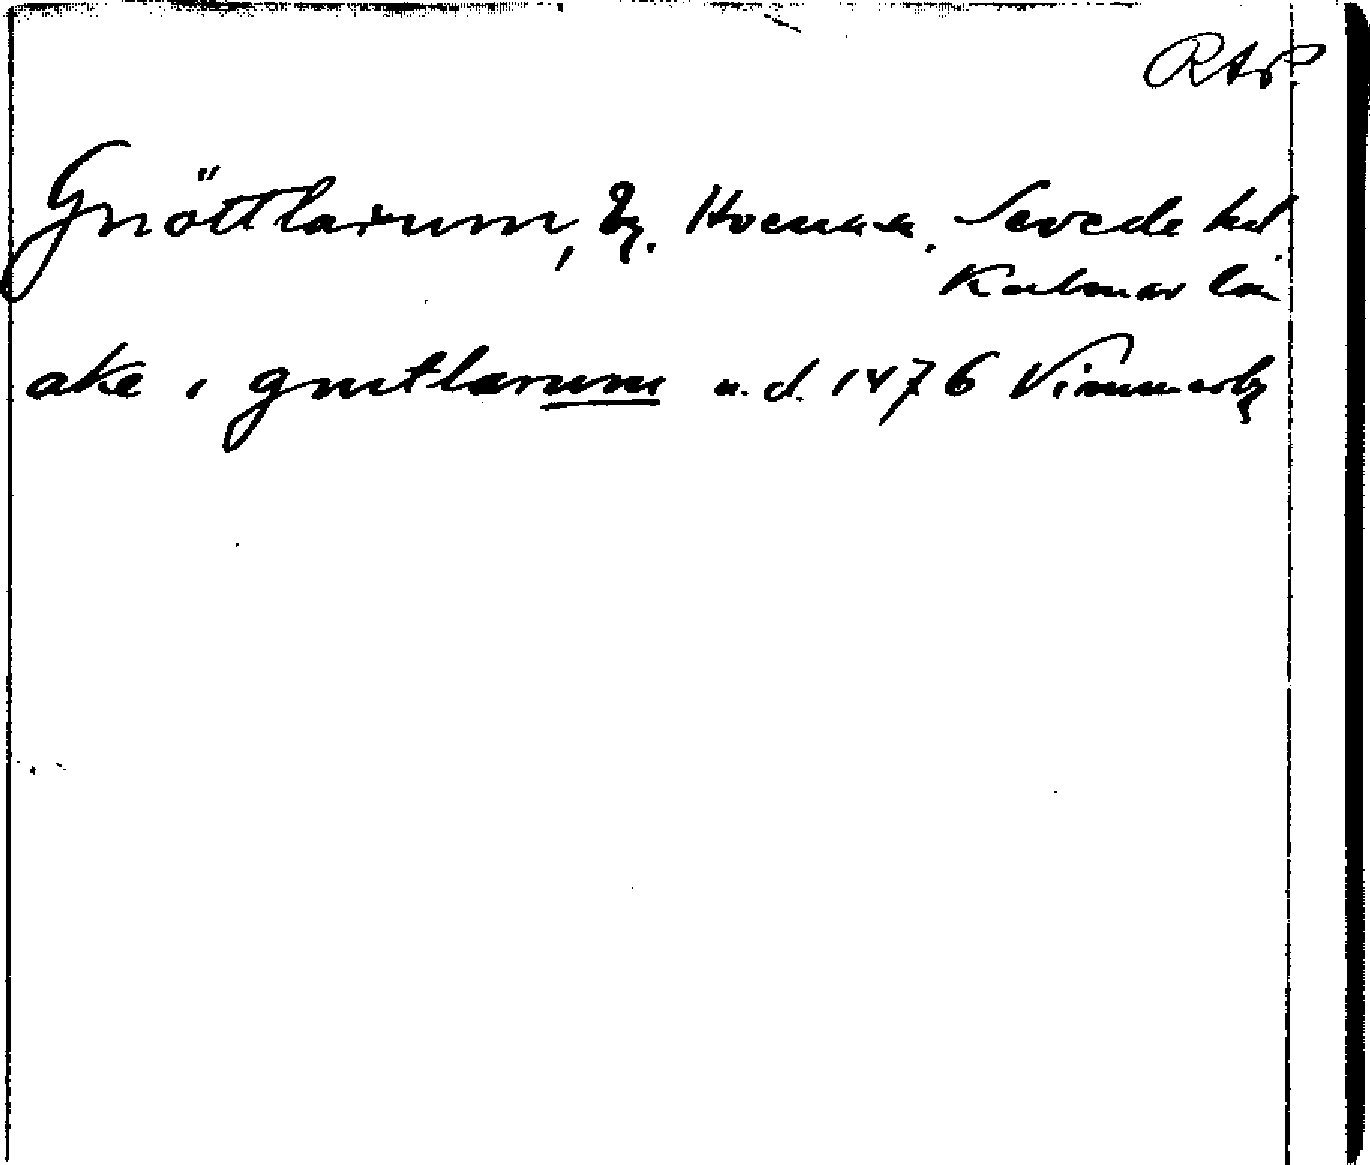 RAp.
Gnöttlarum, By. Hvena sn. Sevede hd
Kalmar län
ake i gnutlarum u.d. 1476 Vimmerby